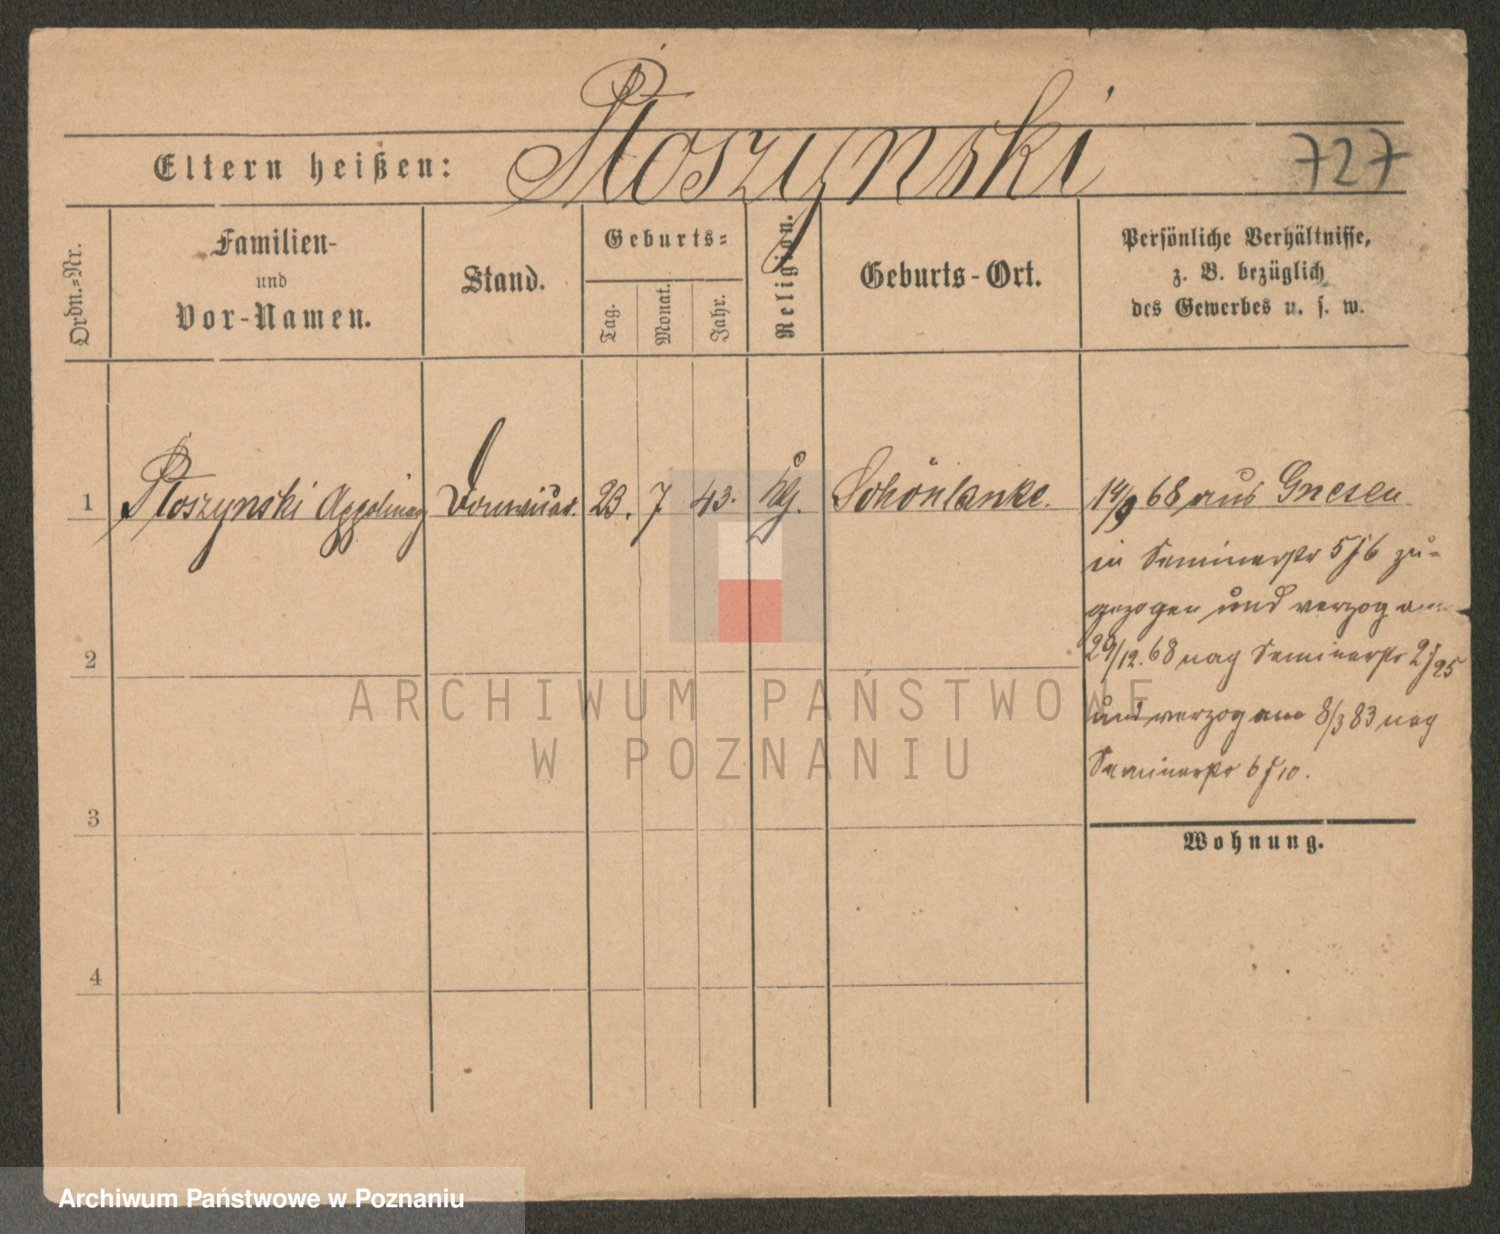 Ptoszynski
Eltern heißen:
727
Ordn.-Nr.
Familien-
und
Vor-Namen.
Stand.
Geburts-
Tag.
Monat.
Jahr.
Religion.
Geburts-Ort.
Persönliche Verhältnisse,
z. B. bezüglich
des Gewerbes u. s. w.
1 Ptoszynski 23. 7 43. Schönlanke. 14/9 68 aus Gnesen
in Seminarstr 5 zu-
gezogen und verzog am
29/12. 68 nach Seminarstr
2
und verzog am 8/3 83 nach
Seminarstr
3
Wohnung.
4
ARCHIWUM PAŃSTWOWE
W POZNANIU
Archiwum Państwowe w Poznaniu